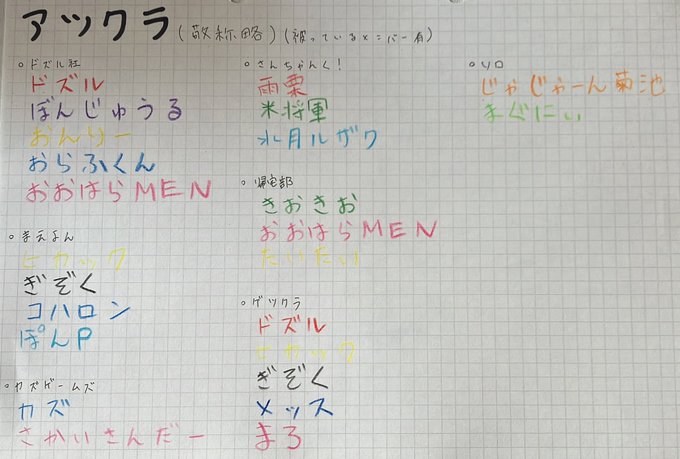 アツクラ(敬称略)(被っているメンバー有)
○ドズル社
ドズル
ぼんじゅうる
おんりー
おらふくん
おおはらMEN
○まえよん
ヒカック
ぎぞく
コハロン
ぽんP
○カズゲームズ
カズ
さかいさんだー
○さんちゃんく!
雨栗
米将軍
水月ルザク
○帰宅部
きおきお
おおはらMEN
たいたい
○ゲツクラ
ドズル
ヒカック
ぎぞく
メッス
まろ
○ソロ
じゃじゃーん菊池
まぐにぃ